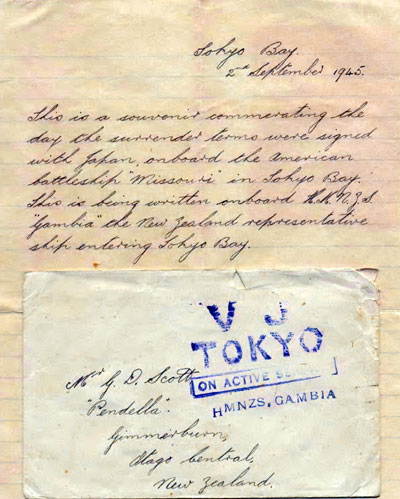 Tokyo Bay.
2nd September 1945.
This is a souvenir commerating the
day the surrender terms were signed
with Japan, onboard the American
battleship "Missouri" in Tokyo Bay.
This is being written onboard H.M.N.Z.S
"Gambia" the New Zealand representative
ship entering Tokyo Bay.
V J
TOKYO
ON ACTIVE
HMNZS, GAMBIA
G. D. Scott
"Pendella".
Gimmerburn,
Otago Central,
New Zealand.